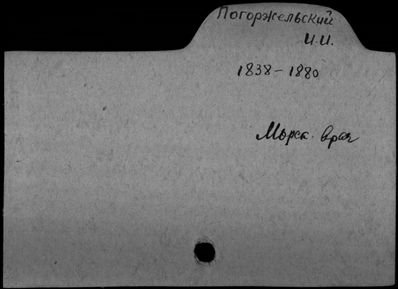 Погоржельский
И.И.
1838-1880
Морск. врач